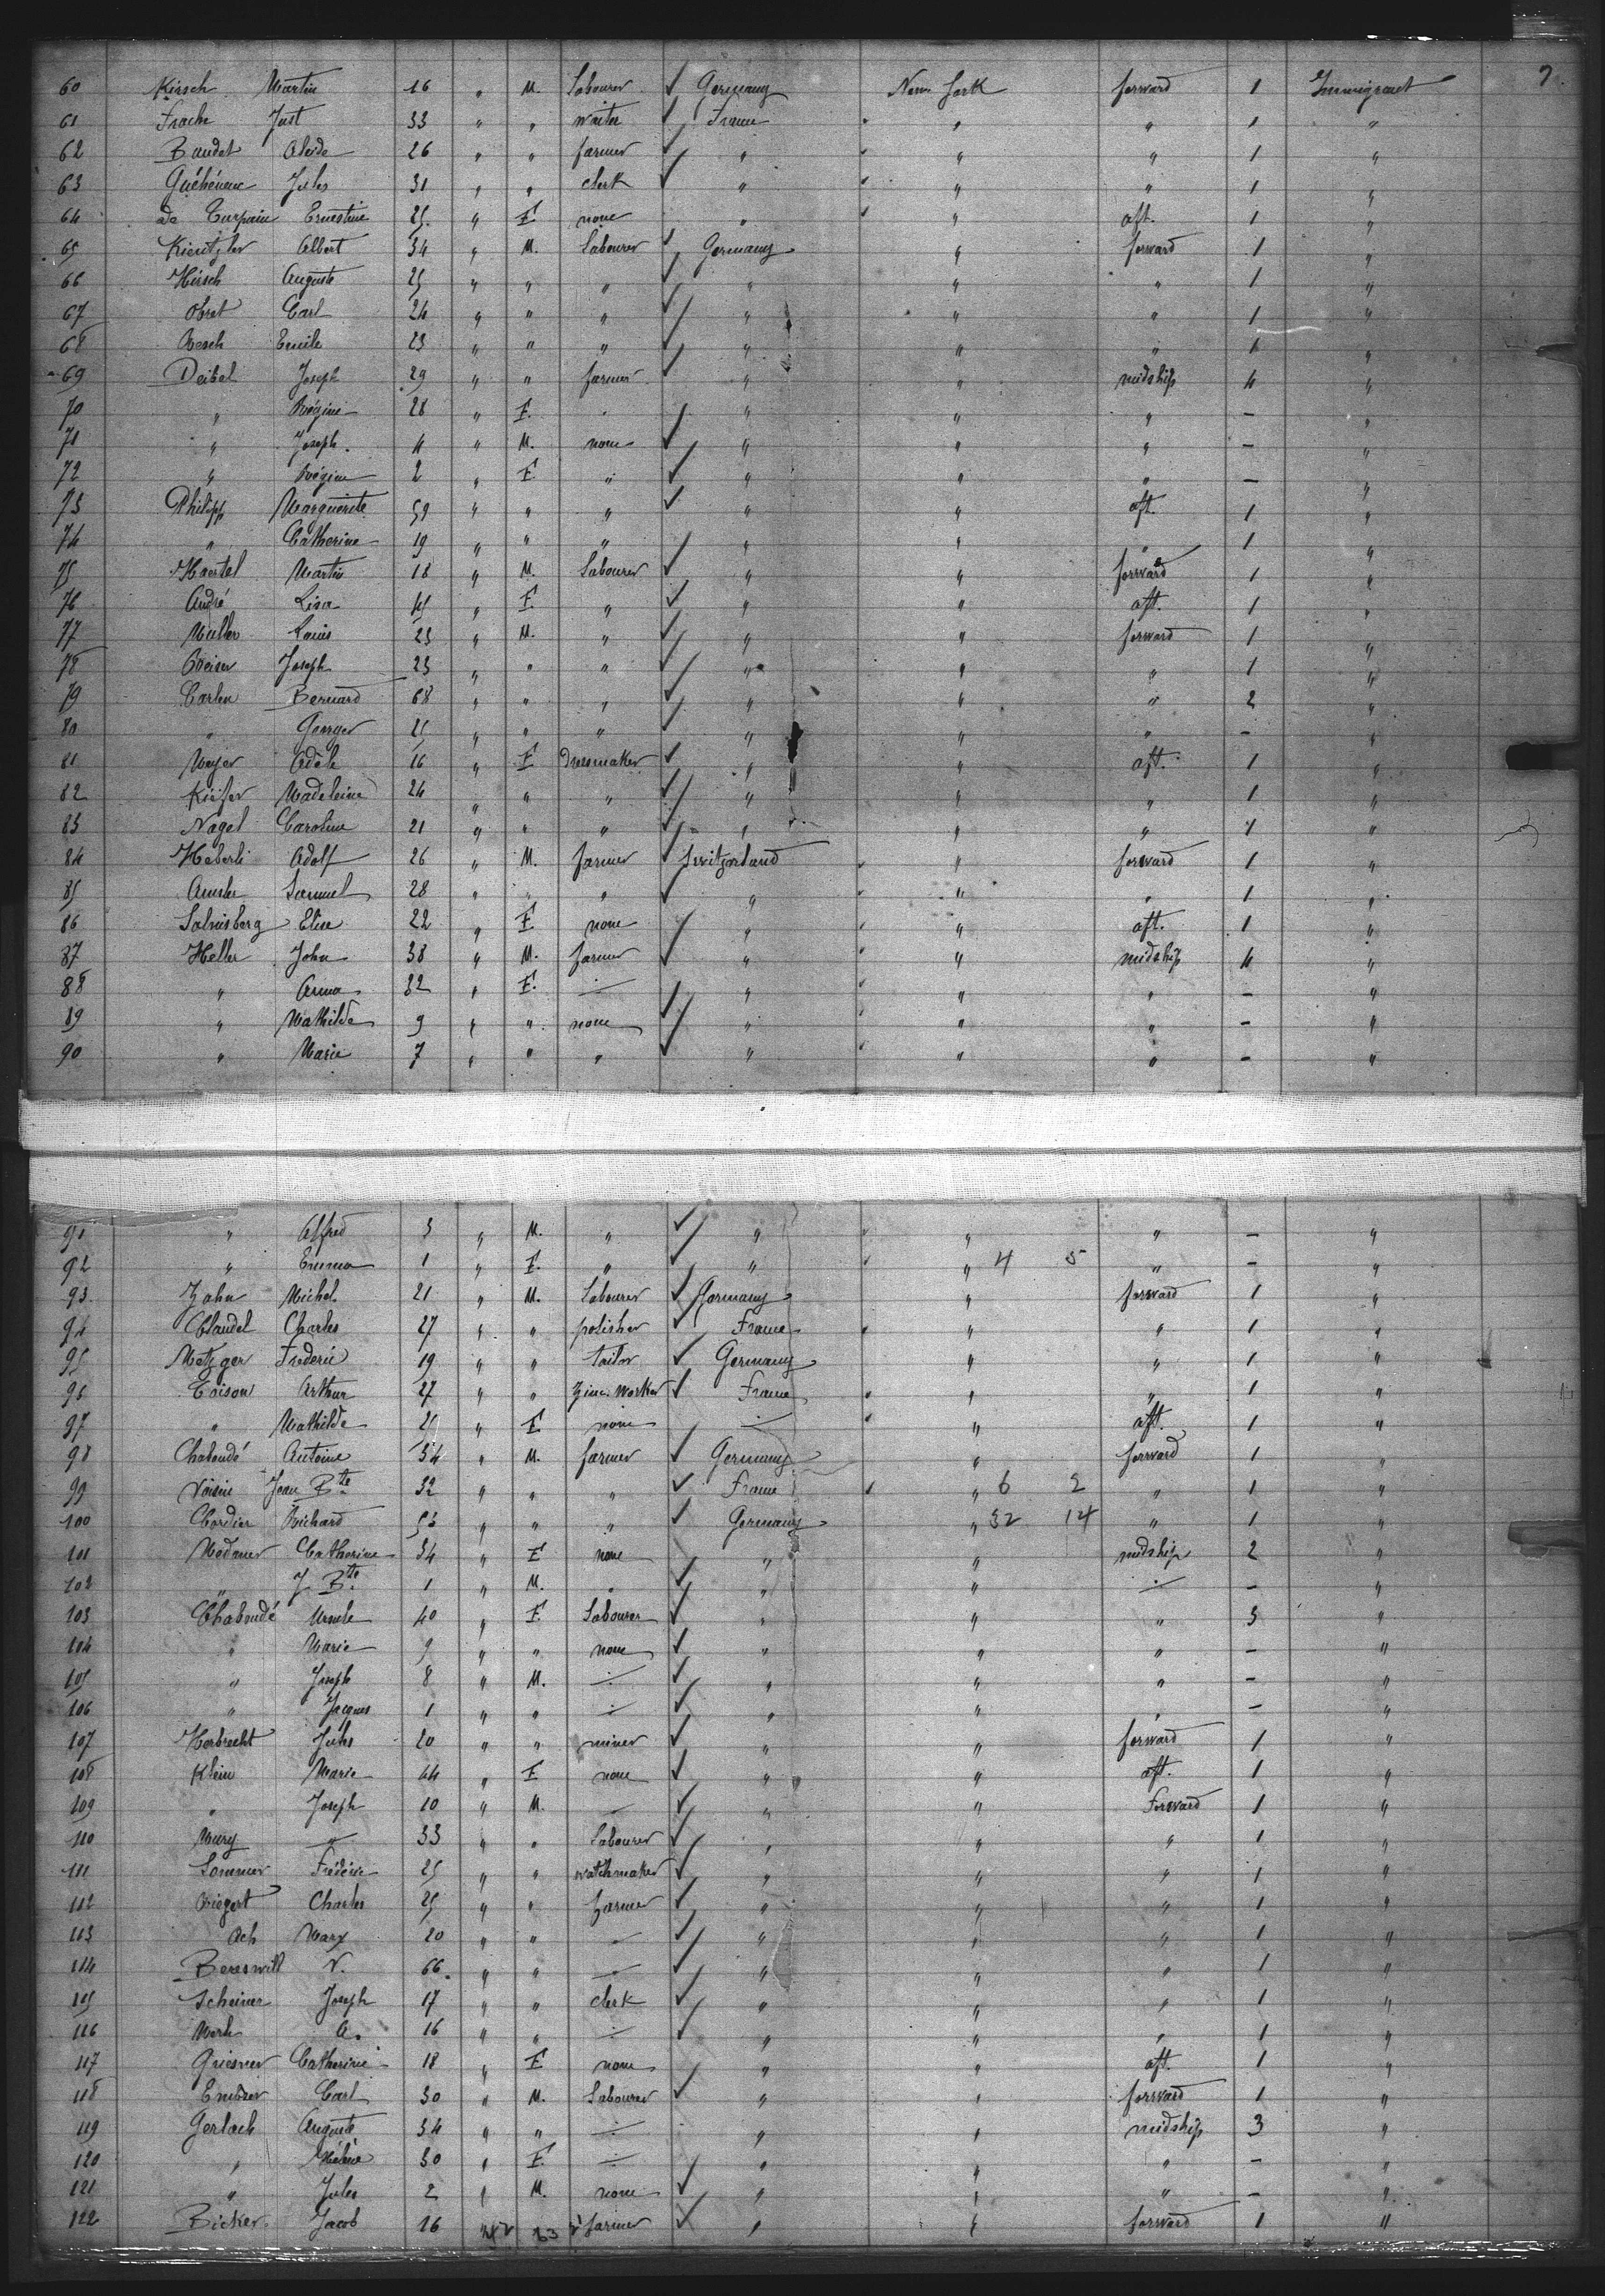 7.
60 Kirsch Martin 16 " M. Labourer ✓ Germany New York forward 1 Immigrant
61 Frache Just 33 " " waiter ✓ France " " 1 "
62 Baudet 26 " " farmer ✓ " " " 1 "
63 Jules 31 " " clerk ✓ " " " 1 "
64 de Turpain Ernestine 25 " F. none " " aft. 1 "
65 Kientzler Albert 34 " M. Labourer ✓ Germany " forward 1 "
66 Hirsch Auguste 25 " " " ✓ " " " 1 "
67 Obret Carl 24 " " " ✓ " " " 1 "
68 Resch Emile 23 " " " ✓ " " " 1 "
69 Deibel Joseph 29 " " farmer ✓ " " midship 4 "
70 " Régine 28 " F. " ✓ " " " - "
71 " Joseph 4 " M. none ✓ " " " - "
72 " Régine 2 " F. " ✓ " " " - "
73 Philipp Marguerite 59 " " " ✓ " " aft. 1 "
74 " Catherine 19 " " " ✓ " " " 1 "
75 Haertel Martin 18 " M. Labourer ✓ " " forward 1 "
76 André Lisa " F. " ✓ " " aft. 1 "
77 Muller Louis 23 " M. " ✓ " " forward 1 "
78 Joseph 23 " " " ✓ " " " 1 "
79 Carlen Bernard 68 " " " ✓ " " " 2 "
80 " George 25 " " " ✓ " " " - "
81 Meyer Adèle 16 " F. Dressmaker ✓ " " aft. 1 "
82 Kiefer Madeleine 24 " " " ✓ " " " 1 "
83 Nagel Caroline 21 " " " ✓ " " " 1 "
84 Heberli Adolf 26 " M. farmer ✓ Switzerland " forward 1 "
85 Amsler Samuel 28 " " " ✓ " " " 1 "
86 Salvisberg Elise 22 " F. none ✓ " " aft. 1 "
87 Heller John 38 " M. farmer ✓ " " midship 4 "
88 " Anna 32 " F. " " " " - "
89 " Mathilde 9 " " none ✓ " " " - "
90 " Marie 7 " " " ✓ " " " - "
91 " Alfred 3 " M. " ✓ " " " - "
92 " Emma 1 " F. " ✓ " " 4 5 " - "
93 Zahn Michel 21 " M. Labourer ✓ Germany " forward 1 "
94 Claudel Charles 27 " " polisher ✓ France " " 1 "
95 Metzger Frederic 19 " " tailor ✓ Germany " " 1 "
96 Toison Arthur 27 " " Zinc Worker ✓ France " " 1 "
97 " Mathilde 21 " F. none " " aft. 1 "
98 Chaboudé Antoine 54 " M. farmer ✓ Germany " forward 1 "
99 Voisin Jean Bte 32 " " " ✓ France " 6 2 " 1 "
100 Cordier Richard 53 " " " ✓ Germany " 32 14 " 1 "
101 Catherine 34 " F. none ✓ " " midship 2 "
102 " J. Bte 1 " M. " ✓ " " " - "
103 Chaboudé Ursule 40 " F. Labourer ✓ " " " 3 "
104 " Marie 9 " " none ✓ " " " - "
105 " Joseph 8 " M. " ✓ " " " - "
106 " Jacques 1 " " " ✓ " " " - "
107 Herbrecht Jules 20 " " miner ✓ " " forward 1 "
108 Klein Marie 44 " F. none ✓ " " aft. 1 "
109 " Joseph 10 " M. " ✓ " " Forward 1 "
110 Mury " 33 " " Labourer ✓ " " " 1 "
111 Sommer Frédéric 25 " " watchmaker ✓ " " " 1 "
112 Riegert Charles 25 " " farmer ✓ " " " 1 "
113 Ach Marx 20 " " " ✓ " " " 1 "
114 Bereswill V. 66 " " " ✓ " " " 1 "
115 Scheiner Joseph 17 " " clerk ✓ " " " 1 "
116 A. 16 " " " ✓ " " " 1 "
117 Griesner Catherine 18 " F. none " " aft. 1 "
118 Carl 30 " M. Labourer ✓ " " forward 1 "
119 Gerlach Auguste 34 " " " " " midship 3 "
120 " Hélène 30 " F. " ✓ " " " - "
121 " Jules 2 " M. none ✓ " " " - "
122 Bicker Jacob 16 " farmer ✓ " " forward 1 "